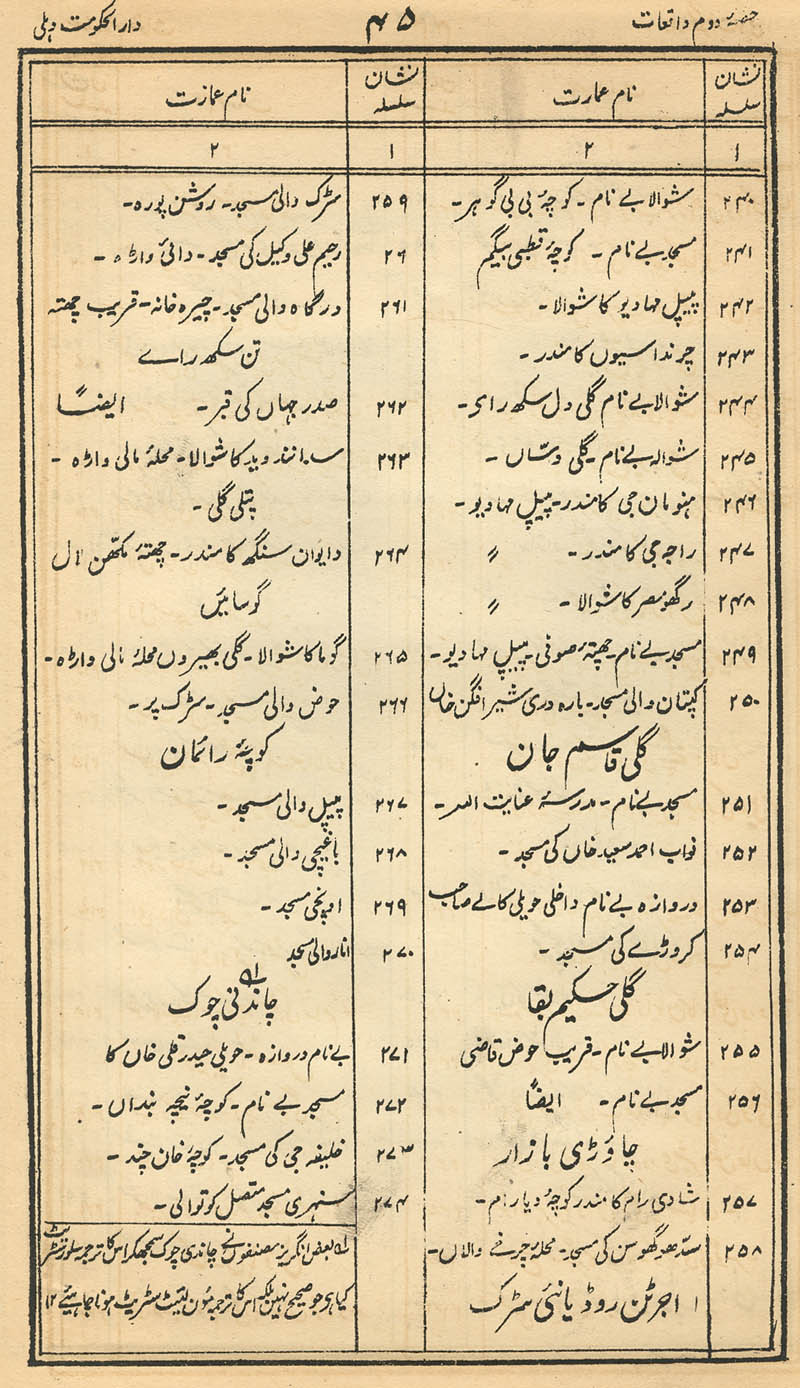 حصۂ دوم واقعات
۴۵
دارالحکومت دہلی
نشان سلسلہ
نام عمارت
۱
۲
۲۴۰ شوالا بے نام - کوچۂ بی بی گوہر -
۲۴۱ مسجد بے نام - کوچۂ قطبی بیگم
۲۴۲ پیپل مہادیو کا شوالا -
۲۴۳ چرنداسیوں کا مندر -
۲۴۴ شوالا بے نام گلی دل سکھ رای -
۲۴۵ شوالہ بے نام - گلی دسّاں -
۲۴۶ ہنومان جی کا مندر - پیپل مہادیو -
۲۴۷ راجہ جی کا مندر - 〃
۲۴۸ رگھو مصر کا شوالا - 〃
۲۴۹ مسجد بے نام - چھتۂ صوفی - پیپل مہادیو -
۲۵۰ کپتان والی مسجد - بارہ دری شیر افگن خاں
گلی قاسم جان
۲۵۱ مسجد بے نام - مدرسۂ عنایت اللہ -
۲۵۲ نواب احمد سعید خاں کی مسجد -
۲۵۳ دروازہ بے نام داخلی حویلی کالے صاحب
۲۵۴ کروڑے کی مسجد -
گلی حکیم بقا
۲۵۵ شوالا بے نام - قریب حوض قاضی
۲۵۶ مسجد بے نام - ایضاً
چاوڑی بازار
۲۵۷ شادی رام کا مندر کوچۂ دیا رام -
۲۵۸ سدّھو گھوسن کی مسجد - محلۂ چرنے والان -
۱ اجرٹن روڈ یا نئی سڑک
نشان سلسلہ
نام عمارت
۱
۲
۲۵۹ سڑک والی مسجد - روشن پورہ -
۲۶ رحیم علی وکیل کی مسجد - دائی واڑہ -
۲۶۱ درگاہ والی مسجد - چیرہ خانہ - قریب چھتہ
تن سکھ راے
۲۶۲ صدر جہاں کی قبر - ایضاً
۲۶۳ سدانند وید کا شوالا - محلۂ مالی واڑہ -
پتلی گلی -
۲۶۴ دایوان سنگھ کا مندر - چھتۂ مکھن لال
گوسائیں
۲۶۵ گوما کا شوالا - گلی بھیروں محلۂ مالی واڑہ -
۲۶۶ حوض والی مسجد - سڑک پر -
کوچۂ رائمان
۲۶۷ پیپل والی مسجد -
۲۶۸ باغیچی والی مسجد -
۲۶۹ اونچی مسجد -
۲۷۰ انار والی مسجد
چاندنی چوک لہ
۲۷۱ بے نام دروازہ - حویلی حیدر قلی خاں کا
۲۷۲ مسجد بے نام - کوچۂ نیچہ بنداں -
۲۷۳ خلیفہ جی کی مسجد - کوچۂ خان چند -
۲۷۴ سنہری مسجد متصل کوتوالی -
لہ بعض انگریز مصنفوں نے چاندی چوک سمجھ کر اس کا ترجمہ سلور سٹریٹ
کیا ہی جو صحیح نہیں بلکہ اس کا ترجمہ مون لئیٹ سٹریٹ ہونا چاہیئے ۱۲